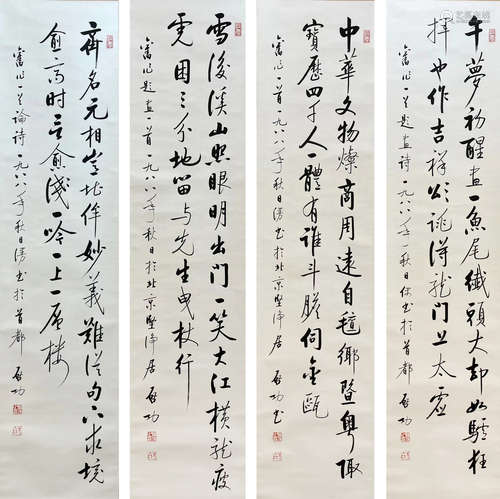 午夢初醒画一魚尾纖頭大却如驢枉
也作吉祥頌跳得龍門上太虛
舊作一首題画詩一九八八年秋日書於首都 啟功
中華文物燦商周遠自氊鄉暨粵陬
寶歷四千人一體有誰斗膽伺金甌
舊作一首一九八八年秋日漫書於北京堅净居 啟功書
雪後溪山照眼明出門一笑大江橫龍疲
虎困三分地留与先生曳杖行
舊作題画一首一九八八年秋日於北京堅净居 啟功
齊名元相豈堪侔妙義難從句下求境
愈高时言愈淺一吟一上一層樓
舊作一首論詩一九八八年秋日漫書於首都 啟功